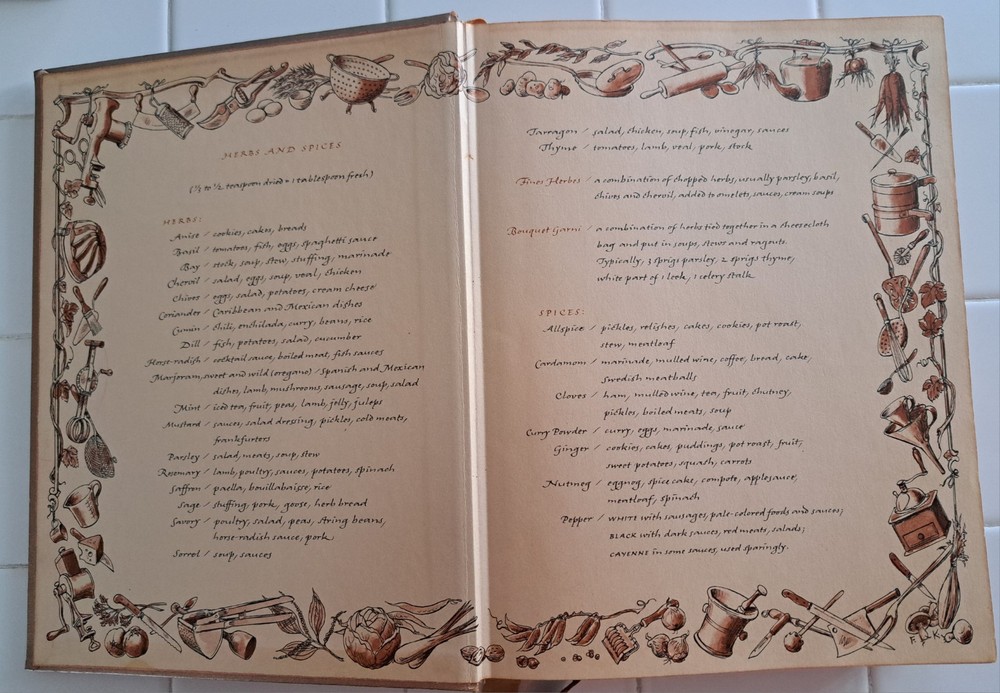 HERBS AND SPICES
(⅓ to ½ teaspoon dried = 1 tablespoon fresh)
HERBS:
Anise / cookies, cakes, breads
Basil / tomatoes, fish, eggs, spaghetti sauce
Bay / stock, soup, stew, stuffing, marinade
Chervil / salad, eggs, soup, veal, chicken
Chives / eggs, salad, potatoes, cream cheese
Coriander / Caribbean and Mexican dishes
Cumin / chili, enchilada, curry, beans, rice
Dill / fish, potatoes, salad, cucumber
Horse-radish / cocktail sauce, boiled meat, fish sauces
Marjoram, sweet and wild (oregano) / Spanish and Mexican
dishes, lamb, mushrooms, sausage, soup, salad
Mint / iced tea, fruit, peas, lamb, jelly, juleps
Mustard / sauces, salad dressing, pickles, cold meats,
frankfurters
Parsley / salad, meats, soup, stew
Rosemary / lamb, poultry, sauces, potatoes, spinach
Saffron / paella, bouillabaisse, rice
Sage / stuffing, pork, goose, herb bread
Savory / poultry, salad, peas, string beans,
horse-radish sauce, pork
Sorrel / soup, sauces
Tarragon / salad, chicken, soup, fish, vinegar, sauces
Thyme / tomatoes, lamb, veal, pork, stock
Fines Herbes / a combination of chopped herbs, usually parsley, basil,
chives and chervil, added to omelets, sauces, cream soups
Bouquet Garni / a combination of herbs tied together in a cheesecloth
bag and put in soups, stews and ragouts.
Typically, 3 sprigs parsley, 2 sprigs thyme,
white part of 1 leek, 1 celery stalk
SPICES:
Allspice / pickles, relishes, cakes, cookies, pot roast,
stew, meatloaf
Cardamom / marinade, mulled wine, coffee, bread, cake,
Swedish meatballs
Cloves / ham, mulled wine, tea, fruit, chutney,
pickles, boiled meats, soup
Curry Powder / curry, eggs, marinade, sauce
Ginger / cookies, cakes, puddings, pot roast, fruit,
sweet potatoes, squash, carrots
Nutmeg / eggnog, spice cake, compote, applesauce,
meatloaf, spinach
Pepper / WHITE with sausages, pale-colored foods and sauces;
BLACK with dark sauces, red meats, salads;
CAYENNE in some sauces, used sparingly.
F K